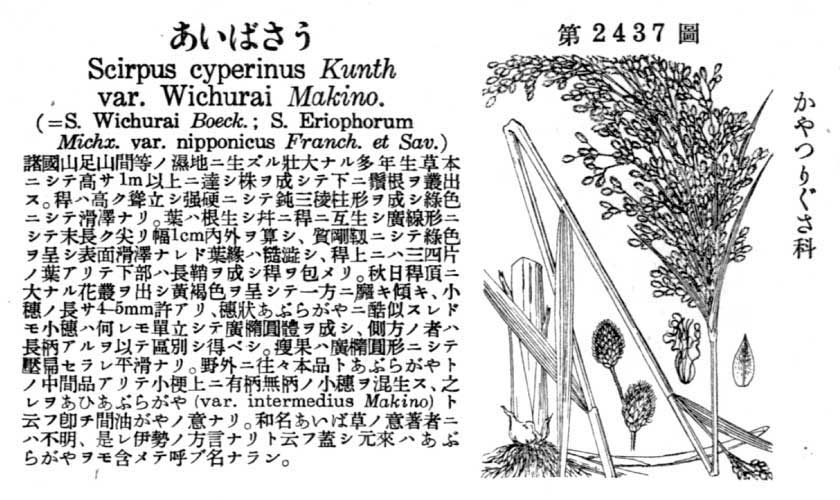 あいばさう
Scirpus cyperinus Kunth
var. Wichurai Makino.
(=S. Wichurai Boeck.; S. Eriophorum
Michx. var. nipponicus Franch. et Sav.)
諸國山足山間等ノ濕地ニ生ズル壯大ナル多年生草本
ニシテ高サ1m以上ニ達シ株ヲ成シテ下ニ鬚根ヲ叢出
ス。稈ハ高ク聳立シ强硬ニシテ鈍三稜柱形ヲ成シ綠色
ニシテ滑澤ナリ。葉ハ根生シ幷ニ稈ニ互生シ廣線形ニ
シテ末長ク尖リ幅1cm內外ヲ算シ、質剛靱ニシテ綠色
ヲ呈シ表面滑澤ナレド葉緣ハ糙澁シ、稈上ニハ三四片
ノ葉アリテ下部ハ長鞘ヲ成シ稈ヲ包メリ。秋日稈頂ニ
大ナル花叢ヲ出シ黃褐色ヲ呈シテ一方ニ靡キ傾キ、小
穗ノ長サ4–5mm許アリ、穗狀あぶらがやニ酷似スレド
モ小穗ハ何レモ單立シテ廣橢圓體ヲ成シ、側方ノ者ハ
長柄アルヲ以テ區別シ得ベシ。瘦果ハ廣橢圓形ニシテ
壓扁セラレ平滑ナリ。野外ニ往々本品トあぶらがやト
ノ中間品アリテ小梗上ニ有柄無柄ノ小穗ヲ混生ス、之
レヲあひあぶらがや (var. intermedius Makino) ト
云フ卽チ間油がやノ意ナリ。和名あいば草ノ意著者ニ
ハ不明、是レ伊勢ノ方言ナリト云フ蓋シ元來ハあぶ
らがやヲモ含メテ呼ブ名ナラン。
第2437圖
かやつりぐさ科